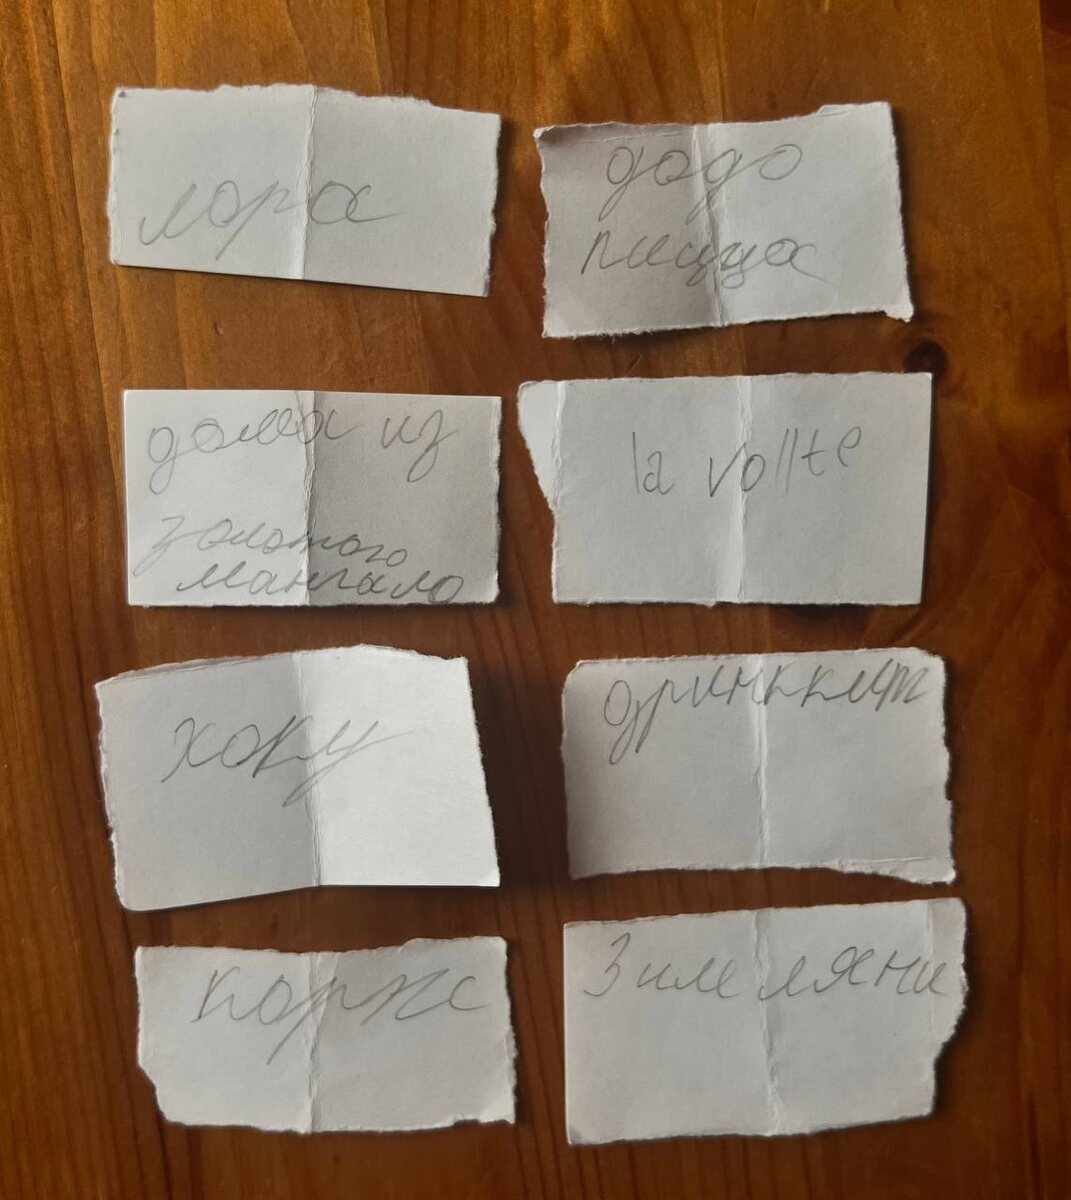 лора
додо
пицца
дома из
золотого
мангала
la vollte
хоку
дринккит
корж
Зимляни